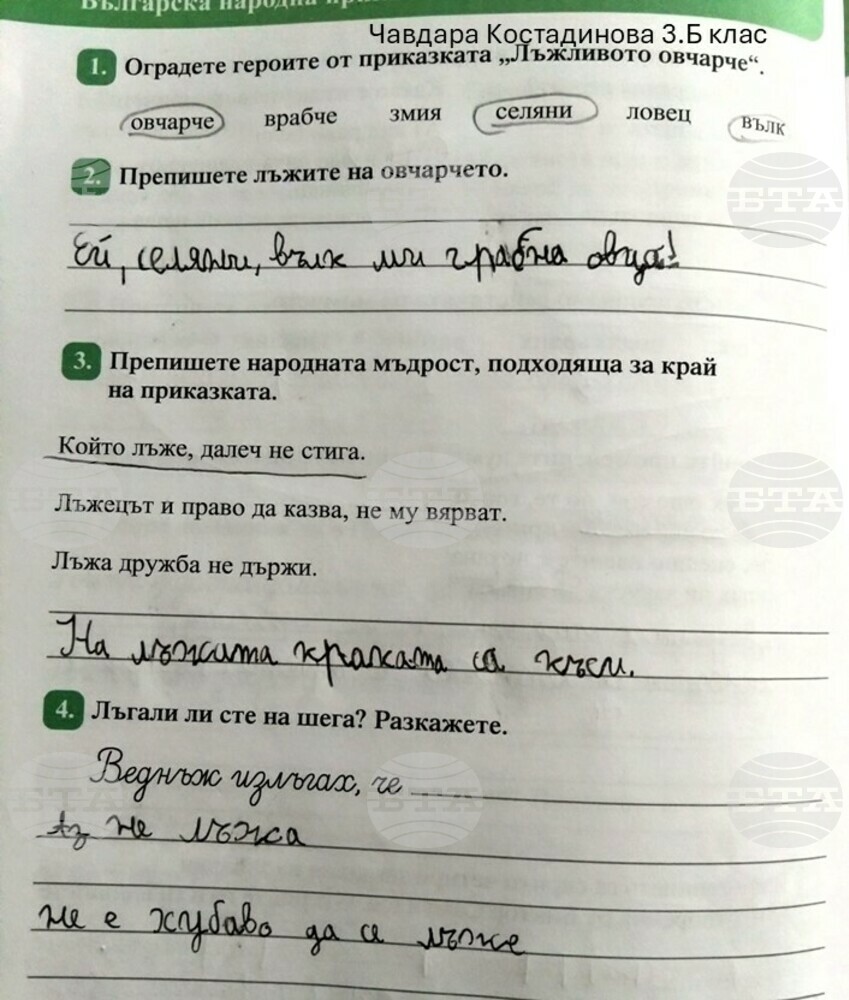 Българска народна
Чавдара Костадинова 3.Б клас
1. Оградете героите от приказката „Лъжливото овчарче“.
овчарче врабче змия селяни ловец вълк
2. Препишете лъжите на овчарчето.
Ей, селяни, вълк ми грабна овца!
3. Препишете народната мъдрост, подходяща за край
на приказката.
Който лъже, далеч не стига.
Лъжецът и право да казва, не му вярват.
Лъжа дружба не държи.
На лъжита краката са къси.
4. Лъгали ли сте на шега? Разкажете.
Веднъж излъгах, че
Аз не лъжа
не е хубаво да се лъже
БТА